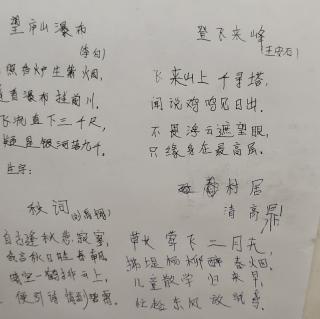 望庐山瀑布
(李白)
照香炉生紫烟,
看瀑布挂前川。
飞流直下三千尺,
疑是银河落九天。
生字:
登飞来峰
(王安石)
飞来山上千寻塔,
闻说鸡鸣见日出.
不畏浮云遮望眼,
只缘身在最高层.
秋词
(刘禹锡)
自古逢秋悲寂寥,
我言秋日胜春朝
晴空一鹤排云上,
便引诗情到碧霄.
村居
清 高鼎
草长莺飞二月天,
拂堤杨柳醉春烟.
儿童散学归来早,
忙趁东风放纸鸢.